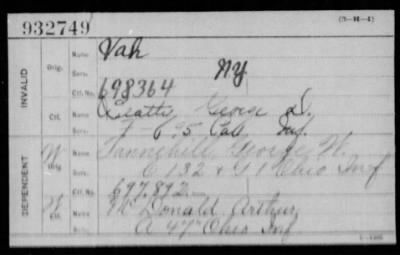 (3-H-4)
932749
INVALID
Orig.
Name
Vah
Serv.
NY
Ctf. No.
698364
Ctf.
Name
Beatty George D.
Serv.
Cal Inf.
DEPENDENT
W
Orig.
Name
Tannehill, George W.
Serv.
C 132 & G 1 Ohio Inf
Ctf. No.
697,892.
W
Ctf.
Name
McDonald Arthur
Serv.
A 47" Ohio Inf